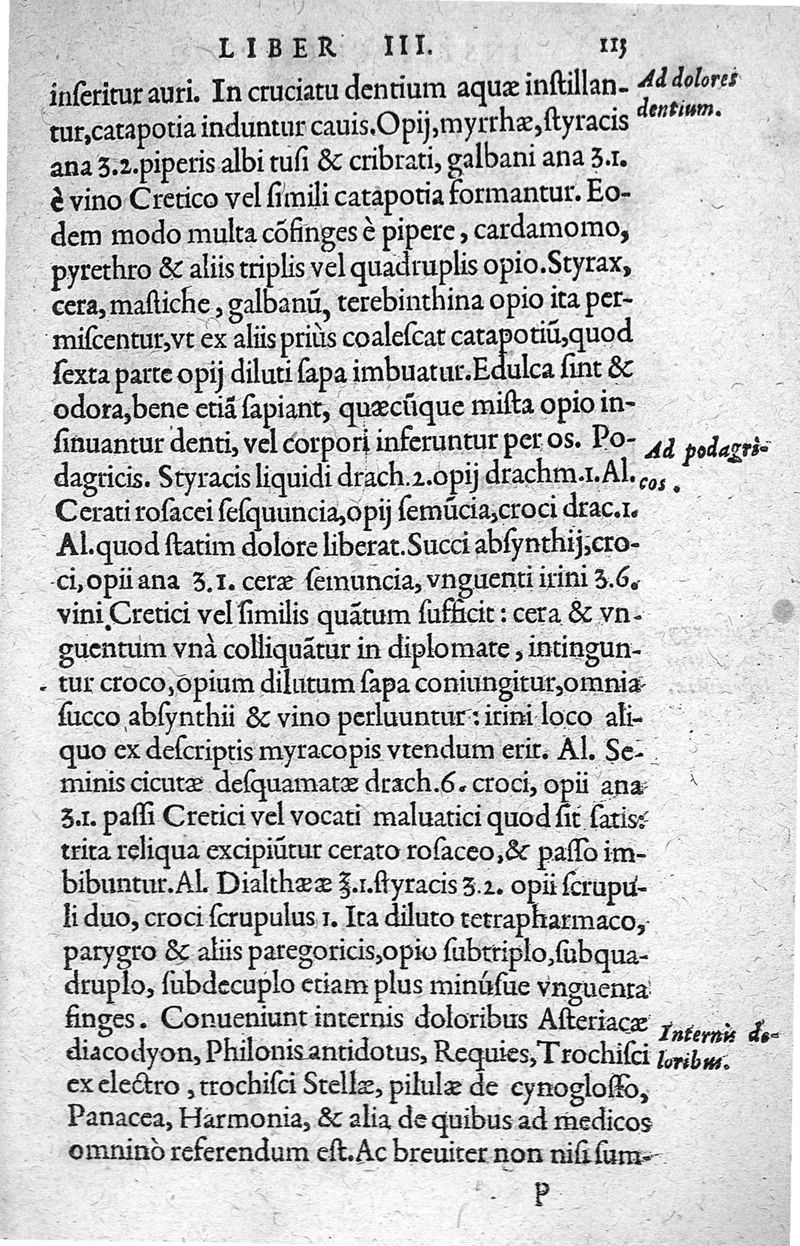 LIBER III. 113
inſeritur auri. In cruciatu dentium aquæ inſtillan-
Ad dolores
dentium.
tur,catapotia induntur cauis.Opij,myrrhæ,ſtyracis
ana ʒ.2.piperis albi tuſi & cribrati, galbani ana ʒ.1.
è vino Cretico vel ſimili catapotia formantur. Eo-
dem modo multa cõfinges è pipere, cardamomo,
pyrethro & aliis triplis vel quadruplis opio.Styrax,
cera, maſtiche, galbanũ, terebinthina opio ita per-
miſcentur,vt ex aliis priùs coaleſcat catapotiũ,quod
ſexta parte opij diluti ſapa imbuatur.Edulca ſint &
odora,bene etiã ſapiant, quæcũque miſta opio in-
ſinuantur denti, vel corpori inferuntur per os. Po-
Ad podagri-
cos.
dagricis. Styracis liquidi drach.2.opij drachm.1.Al.
Cerati roſacei ſeſquuncia,opij ſemũcia,croci drac.1.
Al.quod ſtatim dolore liberat.Succi abſynthij,cro-
ci,opii ana ʒ.1. ceræ ſemuncia, vnguenti irini ʒ.6.
vini Cretici vel ſimilis quãtum ſufficit: cera & vn-
guentum vnà colliquãtur in diplomate, intingun-
tur croco,opium dilutum ſapa coniungitur,omnia
ſucco abſynthii & vino perluuntur: irini loco ali-
quo ex deſcriptis myracopis vtendum erit. Al. Se-
minis cicutæ deſquamatæ drach.6. croci, opii ana
ʒ.1. paſſi Cretici vel vocati maluatici quod ſit ſatis:
trita reliqua excipiũtur cerato roſaceo,& paſſo im-
bibuntur.Al. Dialthææ ℥.1.ſtyracis ʒ.2. opii ſcrupu-
li duo, croci ſcrupulus 1. Ita diluto tetrapharmaco,
parygro & aliis paregoricis,opio ſubtriplo,ſubqua-
druplo, ſubdecuplo etiam plus minúſue vnguenta
finges. Conueniunt internis doloribus Aſteriacæ
Internis do-
loribus.
diacodyon, Philonis antidotus, Requies,Trochiſci
ex electro, trochiſci Stellæ, pilulæ de cynogloſſo,
Panacea, Harmonia, & alia de quibus ad medicos
omninò referendum eſt.Ac breuiter non niſi ſum-
P